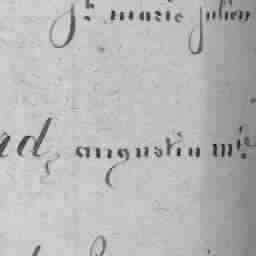 jh marie julien
ad, augustin mie.